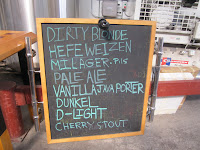 DIRTY BLONDE
HEFEWEIZEN
MILAGER.PILS
PALE ALE
VANILLA JAVA PORTER
DUNKEL
D-LIGHT
CHERRY STOUT